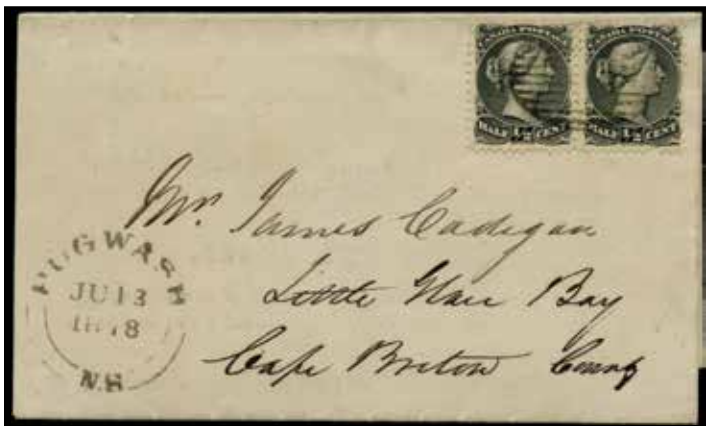 CANADA POSTAGE CANADA POSTAGE
HALF ½ CENT HALF ½ CENT
Mr. James Cadigan
Little Glace Bay
Cape Breton County
PUGWASH
JU 13
1878
N.S